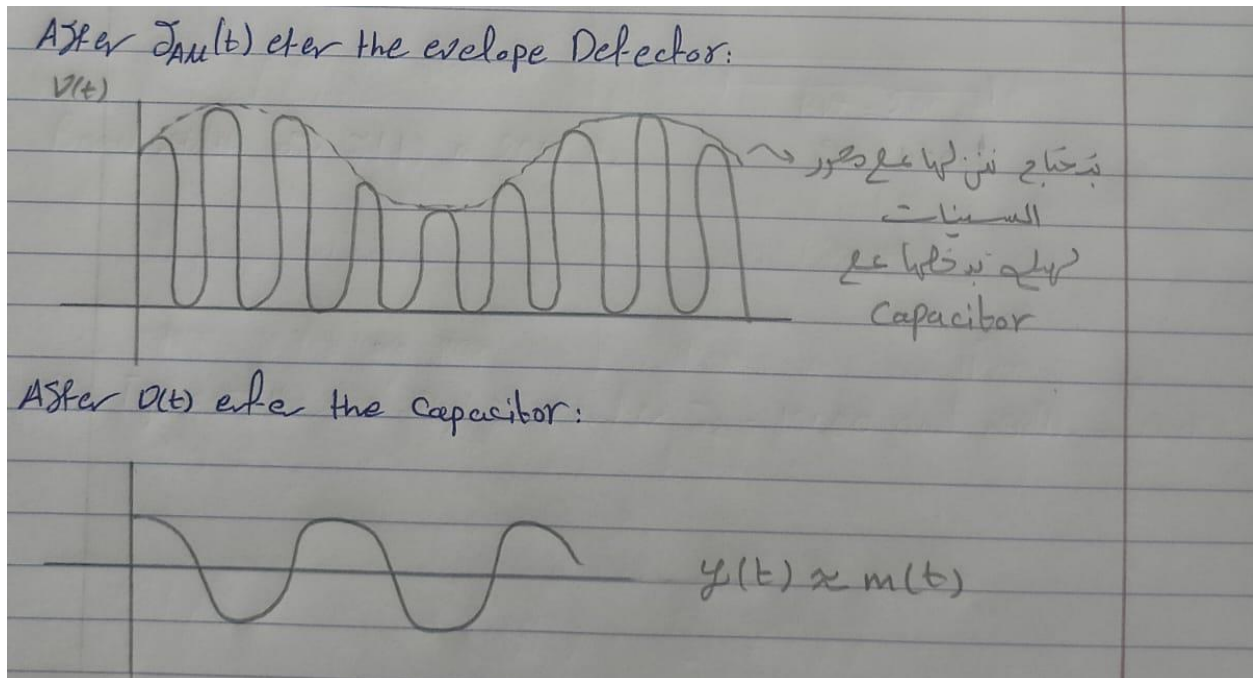 After 𝛿AM(t) eter the evelope Detector:
V(t)
بتحتاج ننزلها ع محور
السينات
لهيك ندخلها ع
Capacitor
After V(t) eter the Capacitor:
y(t) ≈ m(t)